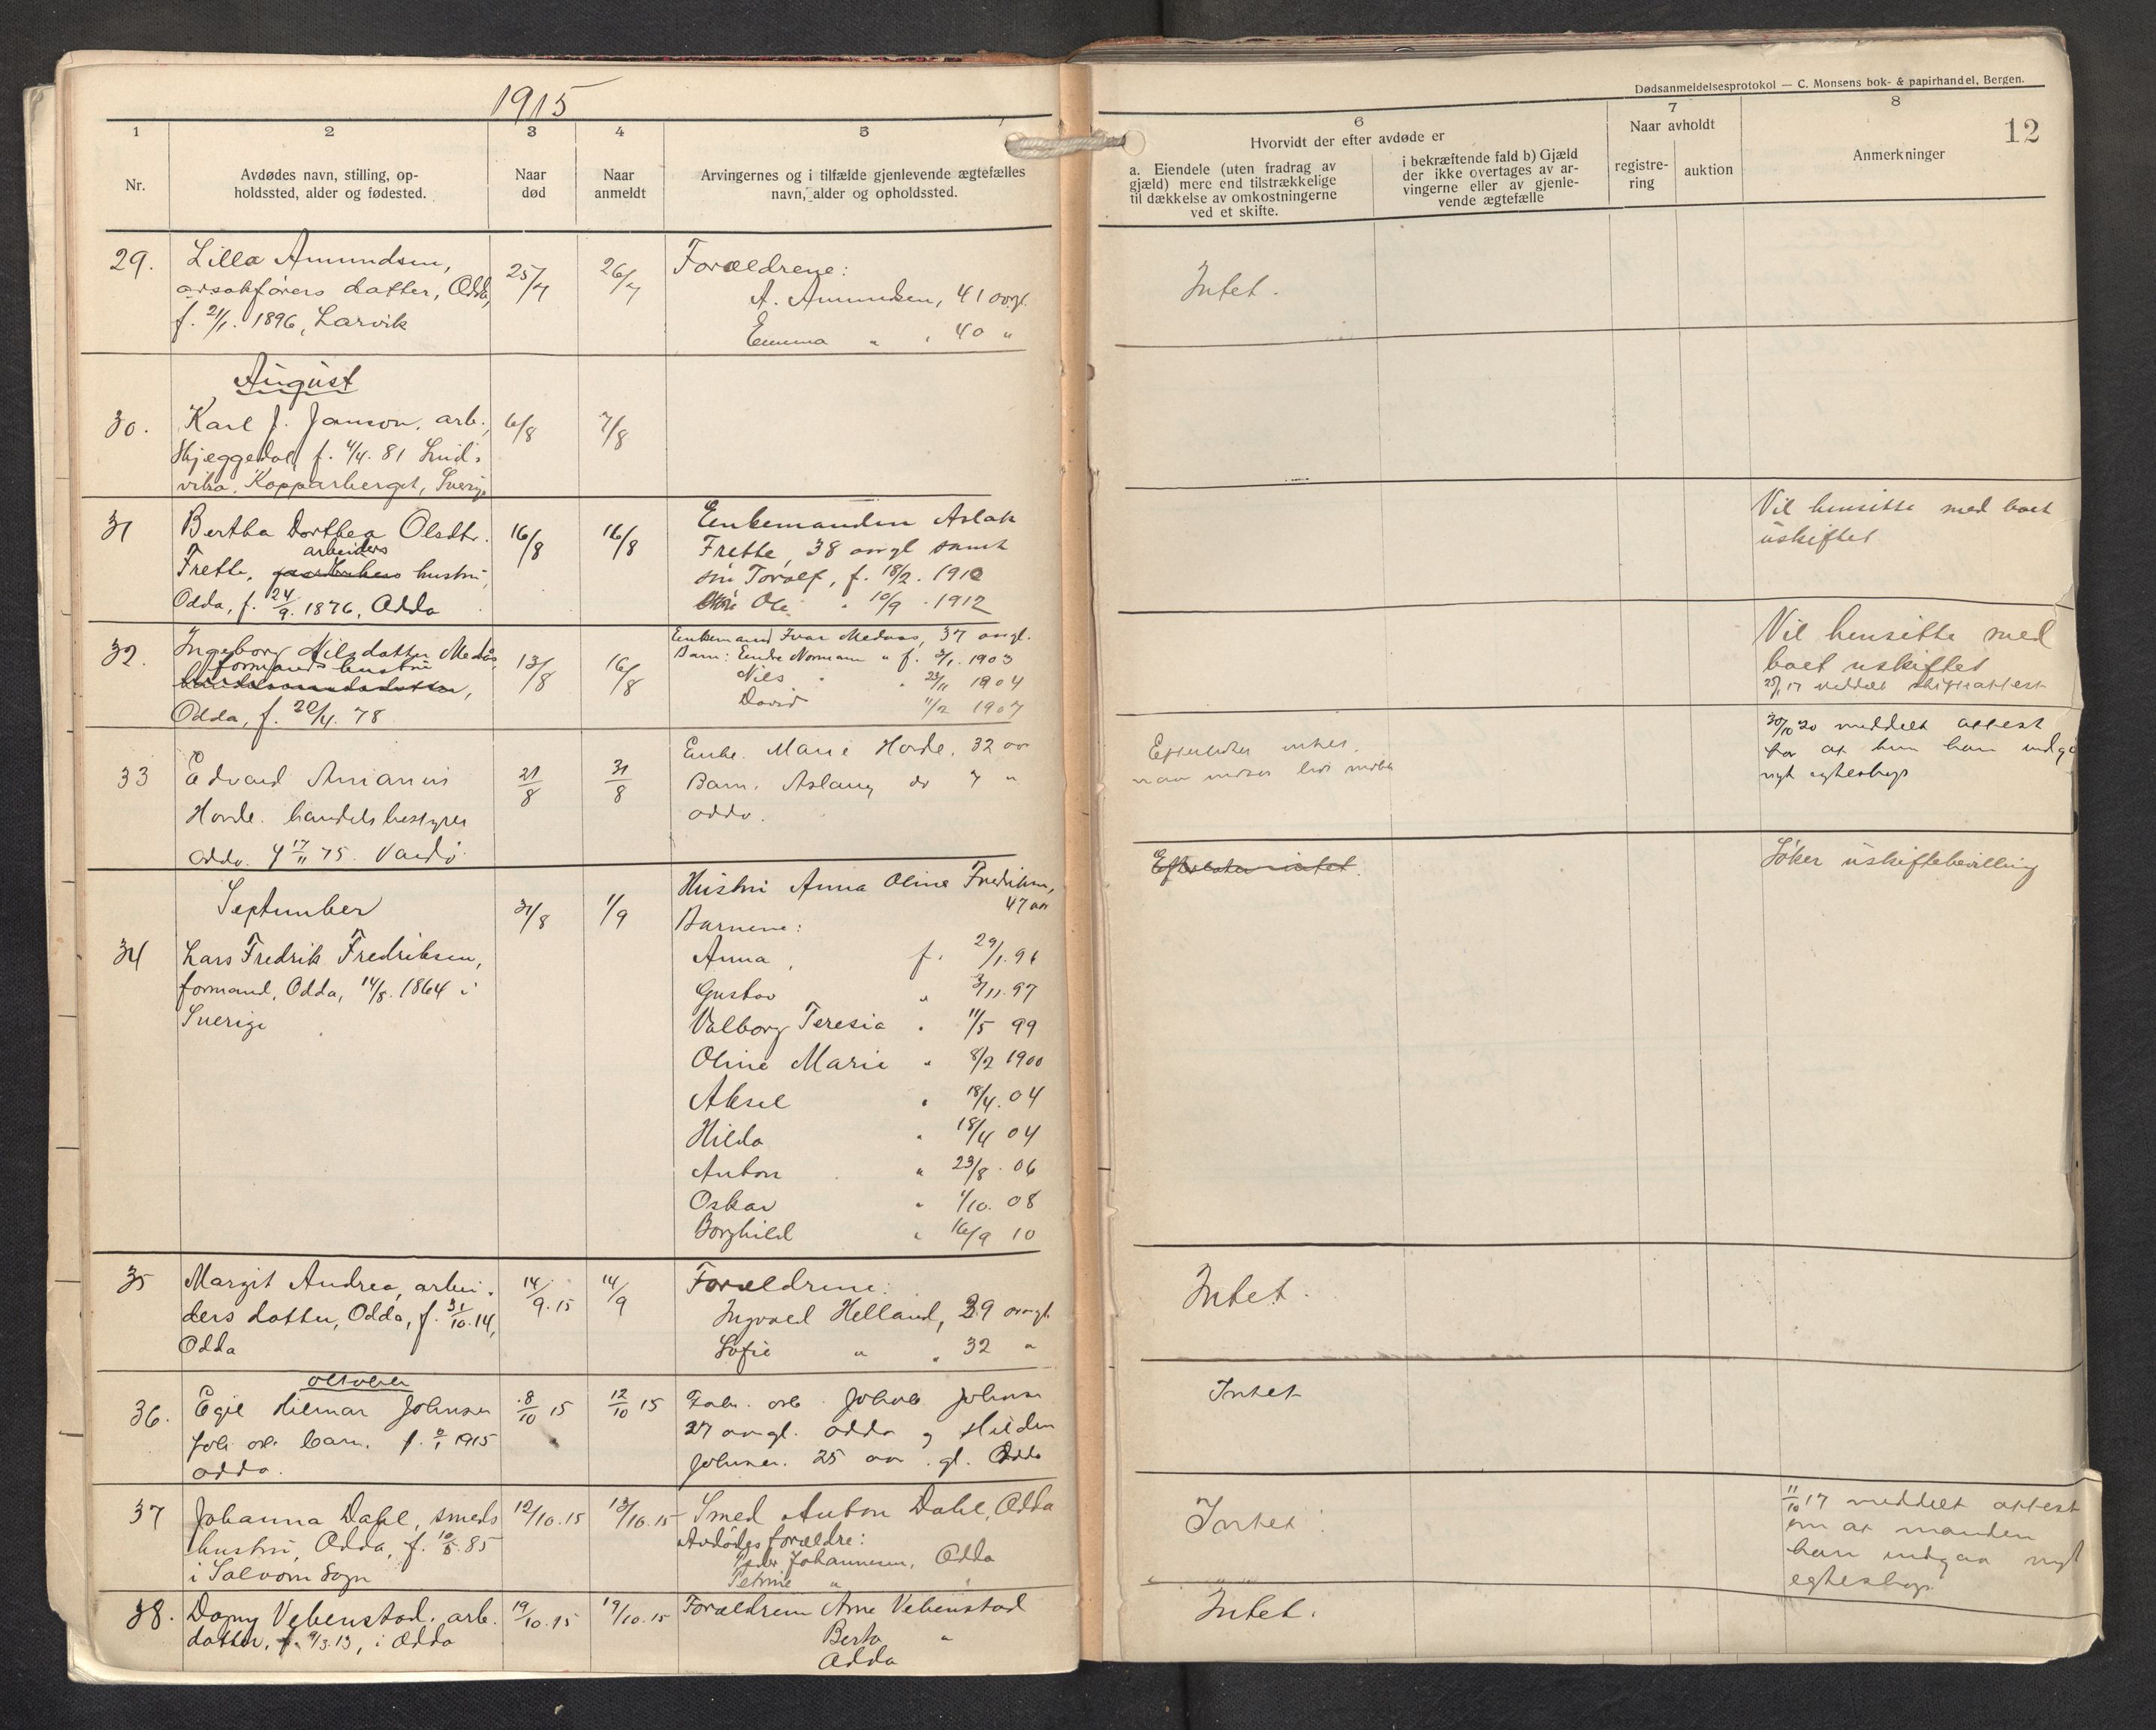 1915
Dødsanmeldelsesprotokol — C. Monsens bok- & papirhandel, Bergen.
12
1
2
3
4
5
6
7
8
Nr.
Avdødes navn, stilling, op-
holdssted, alder og fødested.
Naar
død
Naar
anmeldt
Arvingernes og i tilfælde gjenlevende ægtefælles
navn, alder og opholdssted.
Hvorvidt der efter avdøde er
a. Eiendele (uten fradrag av
gjæld) mere end tilstrækkelige
til dækkelse av omkostningerne
ved et skifte.
i bekræftende fald b) Gjæld
der ikke overtages av ar-
vingerne eller av gjenle-
vende ægtefælle
Naar avholdt
registre-
ring
auktion
Anmerkninger
29.
Lilla Amundsen,
datter, Odda,
f. 21/1. 1896, Larvik
25/7
26/7
Forældrene:
A. Amundsen, 41 aargl.
Emma " , 40 "
Intet.
August
30.
Karl J. Janson, arb.,
Skjeggedal, f. 4/4. 81
Kopparberget, Sverige
6/8
7/8
31
Bertha Dorthea Olsdtr.
arbeiders
Frette, hustru,
Odda, f. 24/9. 1876, Odda
16/8
16/8
Enkemanden Aslak
Frette, 38 aargl samt
sin Toralf, f. 18/2. 1910
Ole " 10/9 . 1912
Vil hensitte med boet
uskiftet
32.
Ingeborg Nilsdatter Medaas,
formands hustru
Odda, f. 20/4. 78
13/8
16/8
Enkemand Ivar Medaas, 37 aargl.
Barn: Endre Normann " f. 3/1. 1903
Nils " " 23/11 1904
David 11/2 1907
Vil hensitte med
boet uskiftet
meddelt skifteattest
33
Edvard
Horde. handelsbestyrer
Odda. f 17/11 75. Vardø
21/8
31/8
Enke. Marie Horde. 32 aar
Barn. Aslaug do 7 "
Odda.
30/10 20 meddelt attest
for at hun kan indgaa
nyt egteskap
September
34
Lars Fredrik Fredriksen,
formand, Odda, 14/8. 1864 i
Sverige
31/8
1/9
Hustru Anna Oline Fredriksen,
47 aar
Barnene:
Anna, f. 29/1. 96
Gustav " 3/11. 97
Valborg Teresia " 11/5 99
Oline Marie " 8/2 1900
Aksel " 18/4. 04
Hilda " 18/4 04
Anton " 23/8. 06
Oskar " 1/10. 08
Borghild " 16/9 10
Efterlater intet.
Søker uskiftebevilling
35
Margit Andrea, arbei-
ders datter, Odda, f. 31/10.14,
Odda
14/9.15
14/9
Forældrene:
Ingvald Helland, 39 aargl.
Sofie " , 32 "
Intet.
oktober
36.
Egil Hilmar Johnsen
barn. f. 1915
Odda.
8/10 15
12/10 15
Fabr. arb. Johnsen
27 aargl. Odda og
Johnsen. 25 aar. gl. Odda
Intet
37
Johanna Dahl, smeds
hustru, Odda, f. 85
i Sogn
12/10.15
13/10.15
Smed Anton Dahl, Odda
Avdødes forældre:
Peder Johannesen, Odda
Petrine "
Intet.
11/10 17 meddelt attest
om at manden
kan indgaa nyt
egteskap
38.
Dagny Vebenstad, arb.
datter, f. 9/3.13, i Odda
19/10.15
19/10.15
Forældrene Arne Vebenstad
Berta "
Odda
Intet.